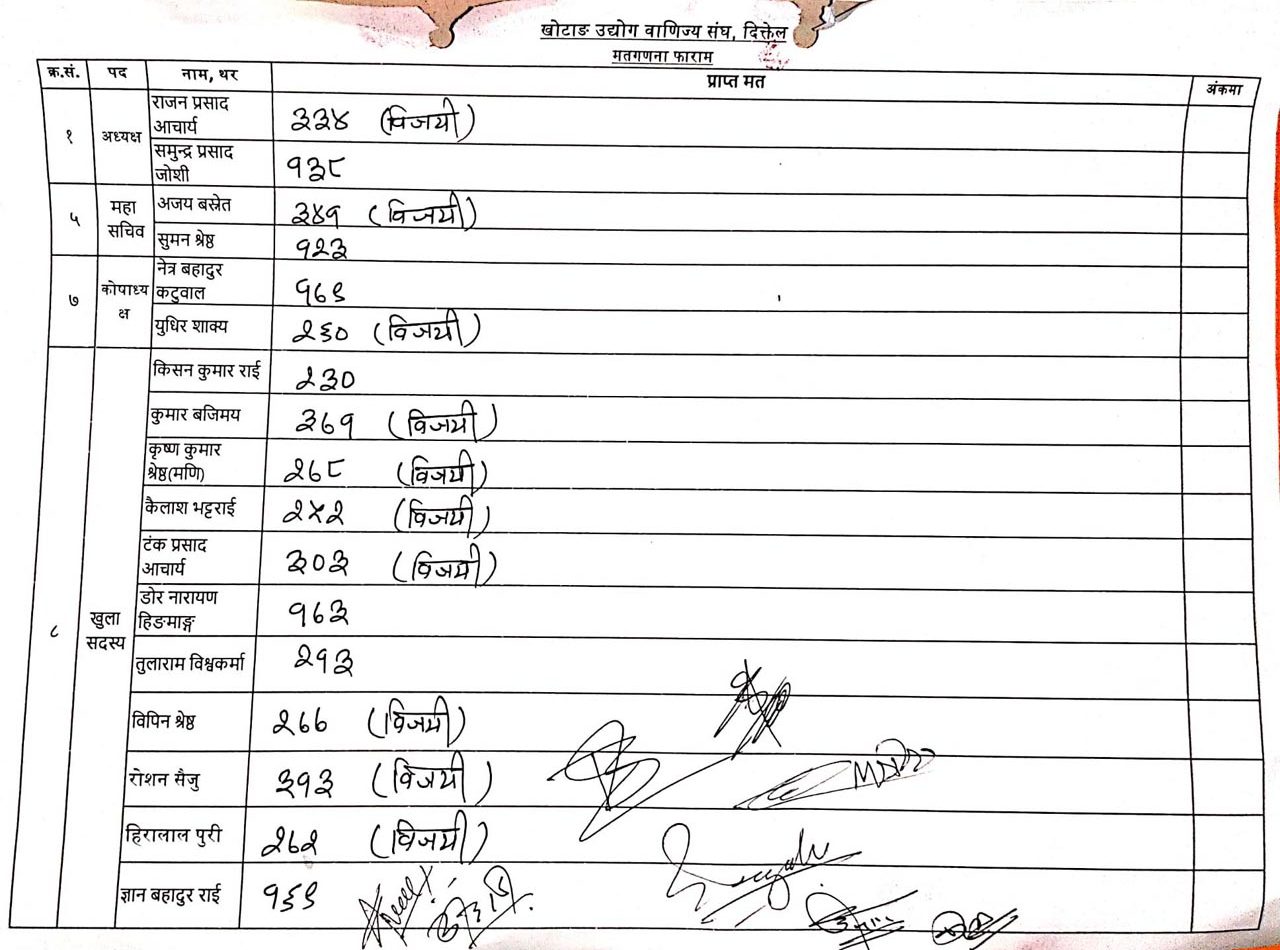 खोटाङ उद्योग वाणिज्य संघ, दिक्तेल
मतगणना फाराम
क्र.सं. पद नाम, थर प्राप्त मत अंकमा
१ अध्यक्ष राजन प्रसाद
आचार्य ३३४ (विजयी)
समुन्द्र प्रसाद
जोशी १३८
५ महा
सचिव अजय बस्नेत ३४१ (विजयी)
सुमन श्रेष्ठ १२३
७ कोषाध्य
क्ष नेत्र बहादुर
कटुवाल १७९
युधिर शाक्य २६० (विजयी)
८ खुला
सदस्य किसन कुमार राई २३०
कुमार बजिमय ३७१ (विजयी)
कृष्ण कुमार
श्रेष्ठ(मणि) २७८ (विजयी)
कैलाश भट्टराई २५२ (विजयी)
टंक प्रसाद
आचार्य ३०३ (विजयी)
डोर नारायण
हिङमाङ्ग १७३
तुलाराम विश्वकर्मा २१३
विपिन श्रेष्ठ २७७ (विजयी)
रोशन सैजु ३१३ (विजयी)
हिरालाल पुरी २७२ (विजयी)
ज्ञान बहादुर राई १६९